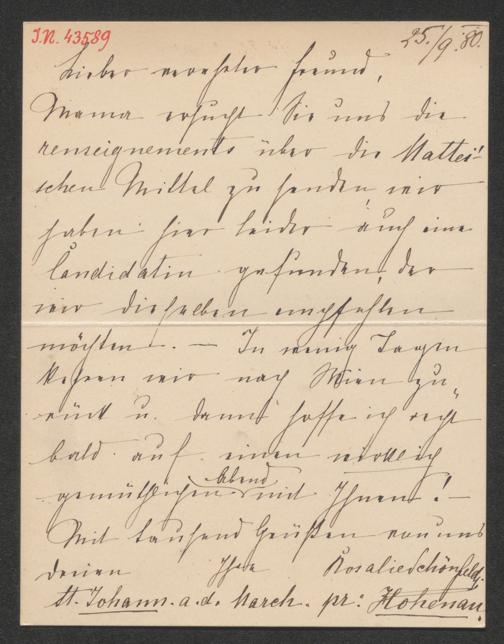 I.N. 43589
25./9. 80.
Lieber verehrter Freund,
Mama ersucht Sie uns die
renseignements über die Mattei'
schen Mittel zu senden, wir
haben hier leider auch eine
Candidatin gefunden, der
wir dieselben empfehlen
möchten. — In wenig Tagen
kehren wir nach Wien zu„
rück u. dann hoffe ich recht
bald auf einen wirklich
gemüthlichen Abend mit Ihnen! —
Mit tausend Grüßen von uns
Ihre Rosalie Schönfeld,
St. Johann a. d. March. pr: Hohenau.